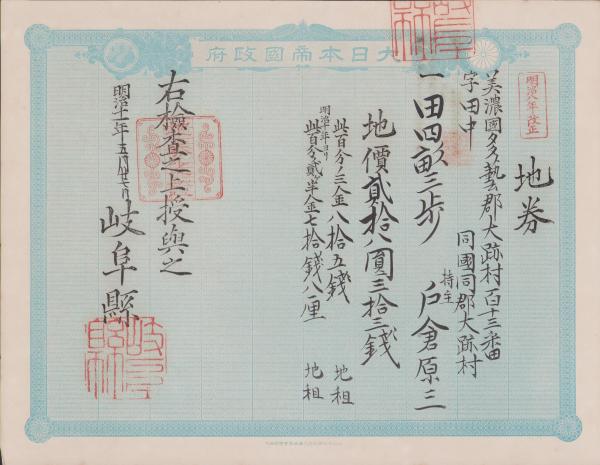 大日本帝國政府
明治八年改正
地券
美濃國多藝郡大跡村百十三番
字田中
同國同郡大跡村
一田四畝三歩
持主
戸倉原三
地價貳拾八圓三拾三錢
此百分ノ三金八拾五錢
地租
明治十年ヨリ
此百分ノ貳半金七拾錢八厘
地租
右檢査之上授與之
明治十一年五月廿七日
岐阜縣